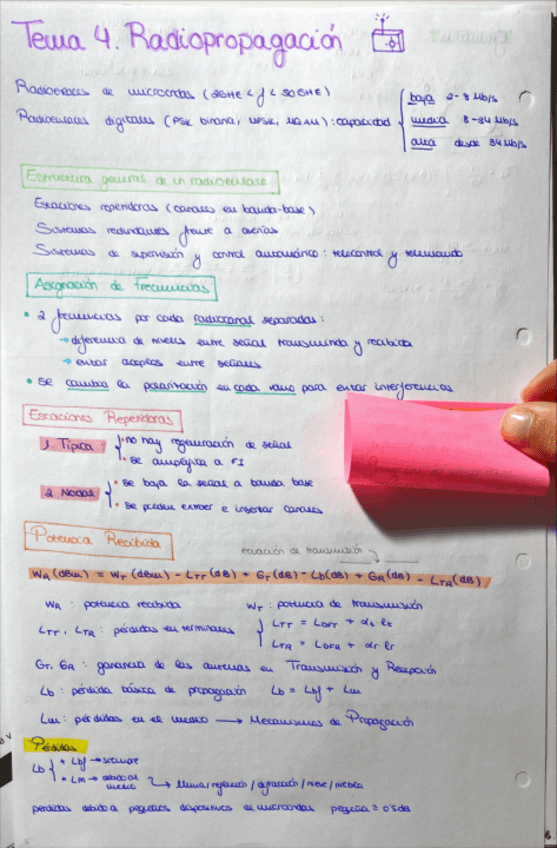 Tema 4. Radiopropagación
Radioenlaces de microondas (2GHz < f < 50GHz)
Radioenlaces digitales (PSK binaria, MPSK, MQAM): capacidad
baja 2-8 Mb/s
media 8-34 Mb/s
alta desde 34 Mb/s
Estructura general de un radioenlace
Estaciones repetidoras (canales en banda-base)
Sistemas redundantes frente a averías
Sistemas de supervisión y control automático: telecontrol y telemando
Asignación de Frecuencias
• 2 frecuencias por cada radiocanal separadas:
→ diferencia de niveles entre señal transmitida y recibida
→ evitar acoplos entre señales
• se cambia la polarización en cada vano para evitar interferencias
Estaciones Repetidoras
1. Típica:
• no hay regeneración de señal
• se amplifica a FI
2. Nodal
• se baja la señal a banda base
• se pueden extraer e insertar canales
Potencia Recibida
ecuación de transmisión
WR (dBm) = WT (dBm) - LTT (dB) + GT (dB) - Lb (dB) + GR (dB) - LTR (dB)
WR : potencia recibida WT : potencia de transmisión
LTT, LTR : pérdidas en terminales
LTT = LDFT + αt lt
LTR = LDFR + αr lr
GT, GR : ganancia de las antenas en Transmisión y Recepción
Lb : pérdida básica de propagación Lb = Lbf + Lm
Lm : pérdidas en el medio → Mecanismos de Propagación
Pérdidas
Lb
• Lbf → siempre
• Lm → debido al medio → lluvia / refracción / difracción / nieve / niebla
perdidas debido a pequeños dispositivos de microondas pequeña ≈ 0'5dB